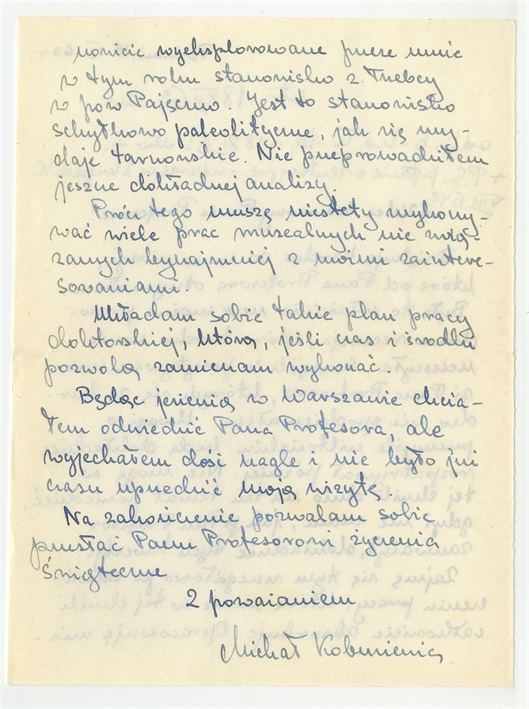 wnicie wyeksplorowane przeze mnie
w tym roku stanowisko z Trzebcy
w pow Pajęczno. Jest to stanowisko
schyłkowo paleolityczne, jak się wy-
daje tarnowskie. Nie przeprowadziłem
jeszcze dokładnej analizy.
Prócz tego muszę niestety wykony-
wać wiele prac muzealnych nie zwią-
zanych bynajmniej z moimi zaintere-
sowaniami.
Układam sobie także plan pracy
doktorskiej, którą, jeśli czas i środki
pozwolą zamierzam wykonać.
Będąc jesienią w Warszawie chcia-
łem odwiedzić Pana Profesora, ale
wyjechałem dość nagle i nie było już
czasu uprzedzić moją wizytę.
Na zakończenie pozwalam sobie
przesłać Panu Profesorowi życzenia
Świąteczne
Z poważaniem
Michał Kobusiewicz